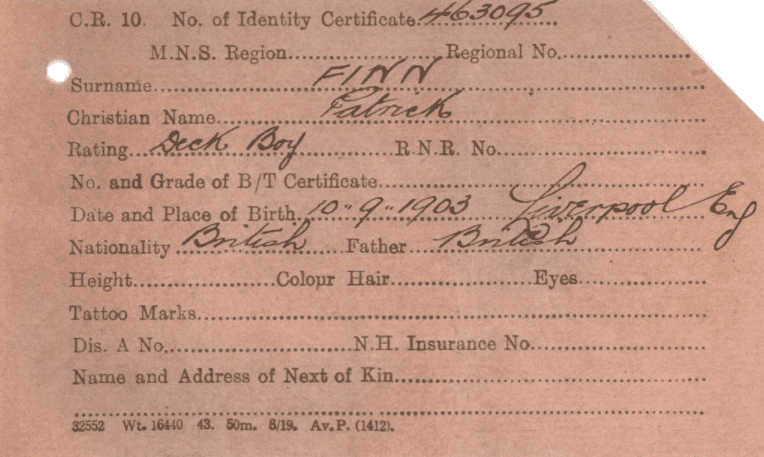 C.R. 10. No. of Identity Certificate 463095
M.N.S. Region Regional No.
Surname FINN
Christian Name Patrick
Rating Deck Boy R.N.R. No.
No. and Grade of B/T Certificate
Date and Place of Birth 10"9"1903 Liverpool Eng
Nationality British Father British
Height Colour Hair Eyes
Tattoo Marks
Dis. A No. N.H. Insurance No.
Name and Address of Next of Kin
32552 Wt. 16440 43. 50m. 8/19. Av. P. (1412).